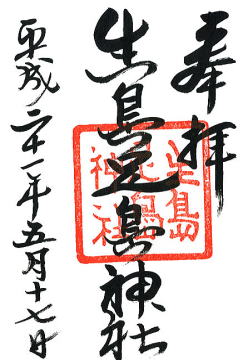 奉拝
生島足島神社
平成二十一年五月十七日
生島
足島
神社